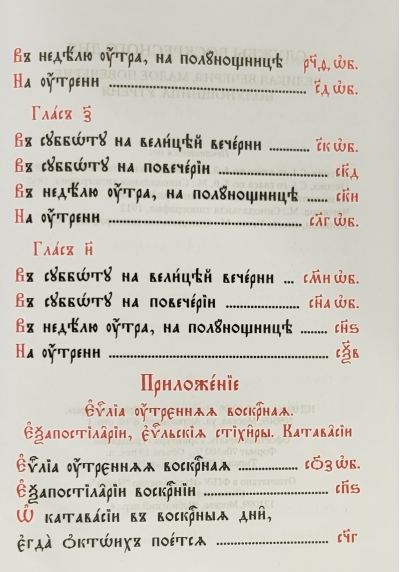 Въ недѣ́лю ᲂу҆́тра, на полꙋ́нощницѣ рч҃д ѡб.
На ᲂу҆́трени ........ с҃д ѡб.
Гла́съ з҃
Въ сꙋббѡ́тꙋ на вели́цѣй вече́рни .... с҃к ѡб.
Въ сꙋббѡ́тꙋ на повече́рїи ........ ск҃д
Въ недѣ́лю ᲂу҆́тра, на полꙋ́нощницѣ ..... ск҃и
На ᲂу҆́трени ........ сл҃г ѡб.
Гла́съ и҃
Въ сꙋббѡ́тꙋ на вели́цѣй вече́рни ... см҃и ѡб.
Въ сꙋббѡ́тꙋ на повече́рїи ........ сн҃а ѡб.
Въ недѣ́лю ᲂу҆́тра, на полꙋ́нощницѣ ....... сн҃ѕ
На ᲂу҆́трени ........ сѯ҃в
Приложе́нїе
Є҆ѵⷢ҇лїа ᲂу҆́трєннѧѧ воскрⷭ҇наѧ.
Є҆ѯапостїла̑рїи, є҆ѵⷢ҇льскїѧ стїхи̑ры. Катава̑сїи
Є҆ѵⷢ҇лїа ᲂу҆́трєннѧѧ воскрⷭ҇наѧ ........ со҃з ѡб.
Є҆ѯапостїла̑рїи воскрⷭ҇нїи ........ сп҃ѕ
Ѽ катава́сїи въ воскрⷭ҇ныѧ дни̑,
є҆гда̀ ѻ҆кто́ихъ пое́тсѧ ........ сч҃г